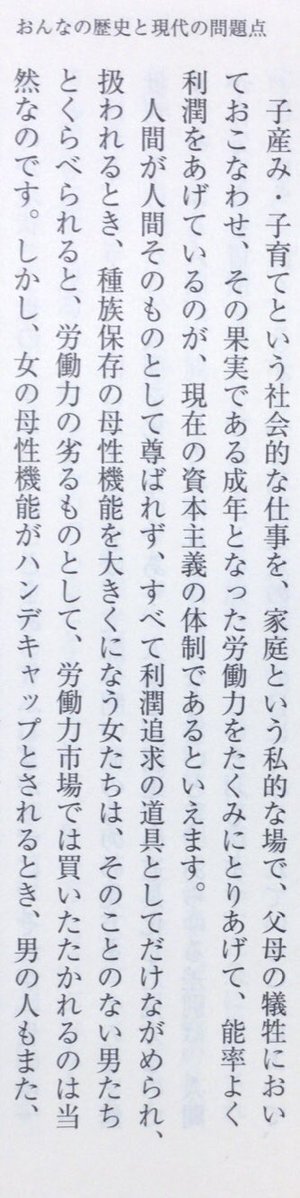 おんなの歴史と現代の問題点
子産み・子育てという社会的な仕事を、家庭という私的な場で、父母の犠牲におい
ておこなわせ、その果実である成年となった労働力をたくみにとりあげて、能率よく
利潤をあげているのが、現在の資本主義の体制であるといえます。
人間が人間そのものとして尊ばれず、すべて利潤追求の道具としてだけながめられ、
扱われるとき、種族保存の母性機能を大きくになう女たちは、そのことのない男たち
とくらべられると、労働力の劣るものとして、労働力市場では買いたたかれるのは当
然なのです。しかし、女の母性機能がハンデキャップとされるとき、男の人もまた、